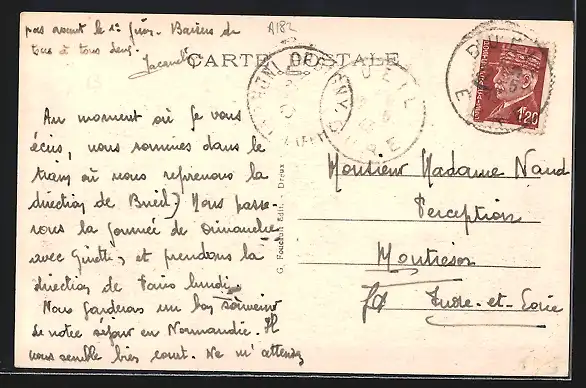 pas avant le 1er Juin. Baisers de
tous à tous deux.
Jacqueline
A182
CARTE POSTALE
BUEIL
EURE
1F20
Au moment où je vous
écris, nous sommes dans le
train où nous reprenons la
direction de Bueil) Nous passe
rons la journée de Dimanche
avec Ginette, et prendons la
direction de Paris lundi.
Nous garderons un bon souvenir
de notre séjour en Normandie. Il
nous semble bien court. Ne m'attendez
G. Foucault Édit. - Dreux
Monsieur Madame Naud
Perception
Montrésor
Indre-et-Loire